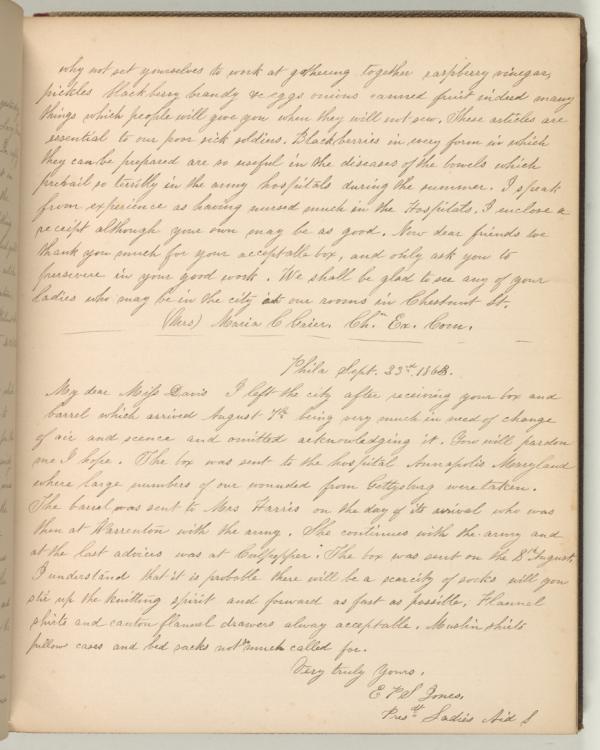 why not set yourselves to work at gathering together raspberry vinegar,
pickles blackberry brandy &c eggs onions canned fruit indeed many
things which people will give you when they will not sew. These articles are
essential to our poor sick soldiers. Blackberries in every form in which
they can be prepared are so useful in the diseases of the bowels which
prevail so terribly in the army hospitals during the summer. I speak
from experience as having nursed much in the Hospitals. I inclose a
receipt although your own may be as good. Now dear friends we
thank you much for your acceptable box, and only ask you to
persevere in your good work. We shall be glad to see any of your
ladies who may be in the city at our rooms in Chestnut St.
(Mrs) Maria C Grier. Chn Ex. Com.
Phila Sept. 23rd 1863.
My dear Miss Davis I left the city after receiving your box and
barrel which arrived August 7th being very much in need of change
of air and scence and omitted acknowledging it. You will pardon
me I hope. The box was sent to the hospital Annapolis Maryland
where large numbers of our wounded from Gettysburg were taken.
The barrel was sent to Mrs Harris on the day of its arrival who was
then at Warrenton with the army. She continues with the army and
at the last advices was at Culpepper. The box was sent on the 8th August.
I understand that it is probable there will be a scarcity of socks will you
stir up the knitting spirit and forward as fast as possible. Flannel
shirts and canton flannel drawers alway acceptable. Muslin shirts
pillow cases and bed sacks not much called for.
Very truly Yours,
E P S Jones,
Prest Ladies Aid S